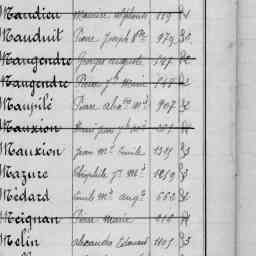 Maudieu Maurice Alphonse 119
Mauduit Pierre Joseph Bte 979
Maugendre Georges Auguste 547
Maugendre Pierre Jh Marie 548
Maupilé Pierre Alex. Md 907
Mauxion Henri Jean Jh
Mauxion Jean Mie Emile 1301
Mazure Théophile Md 1259
Médard Emile Md Augte 663
Meignan Pierre Marie 618
Melin Alexandre Edouard 1105